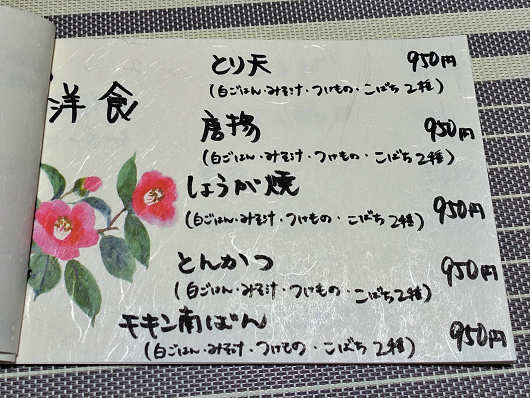 洋食
とり天 950円
(白ごはん・みそ汁・つけもの・こばち2種)
唐揚 950円
(白ごはん・みそ汁・つけもの・こばち2種)
しょうが焼 950円
(白ごはん・みそ汁・つけもの・こばち2種)
とんかつ 950円
(白ごはん・みそ汁・つけもの・こばち2種)
チキン南ばん 950円
(白ごはん・みそ汁・つけもの・こばち2種)